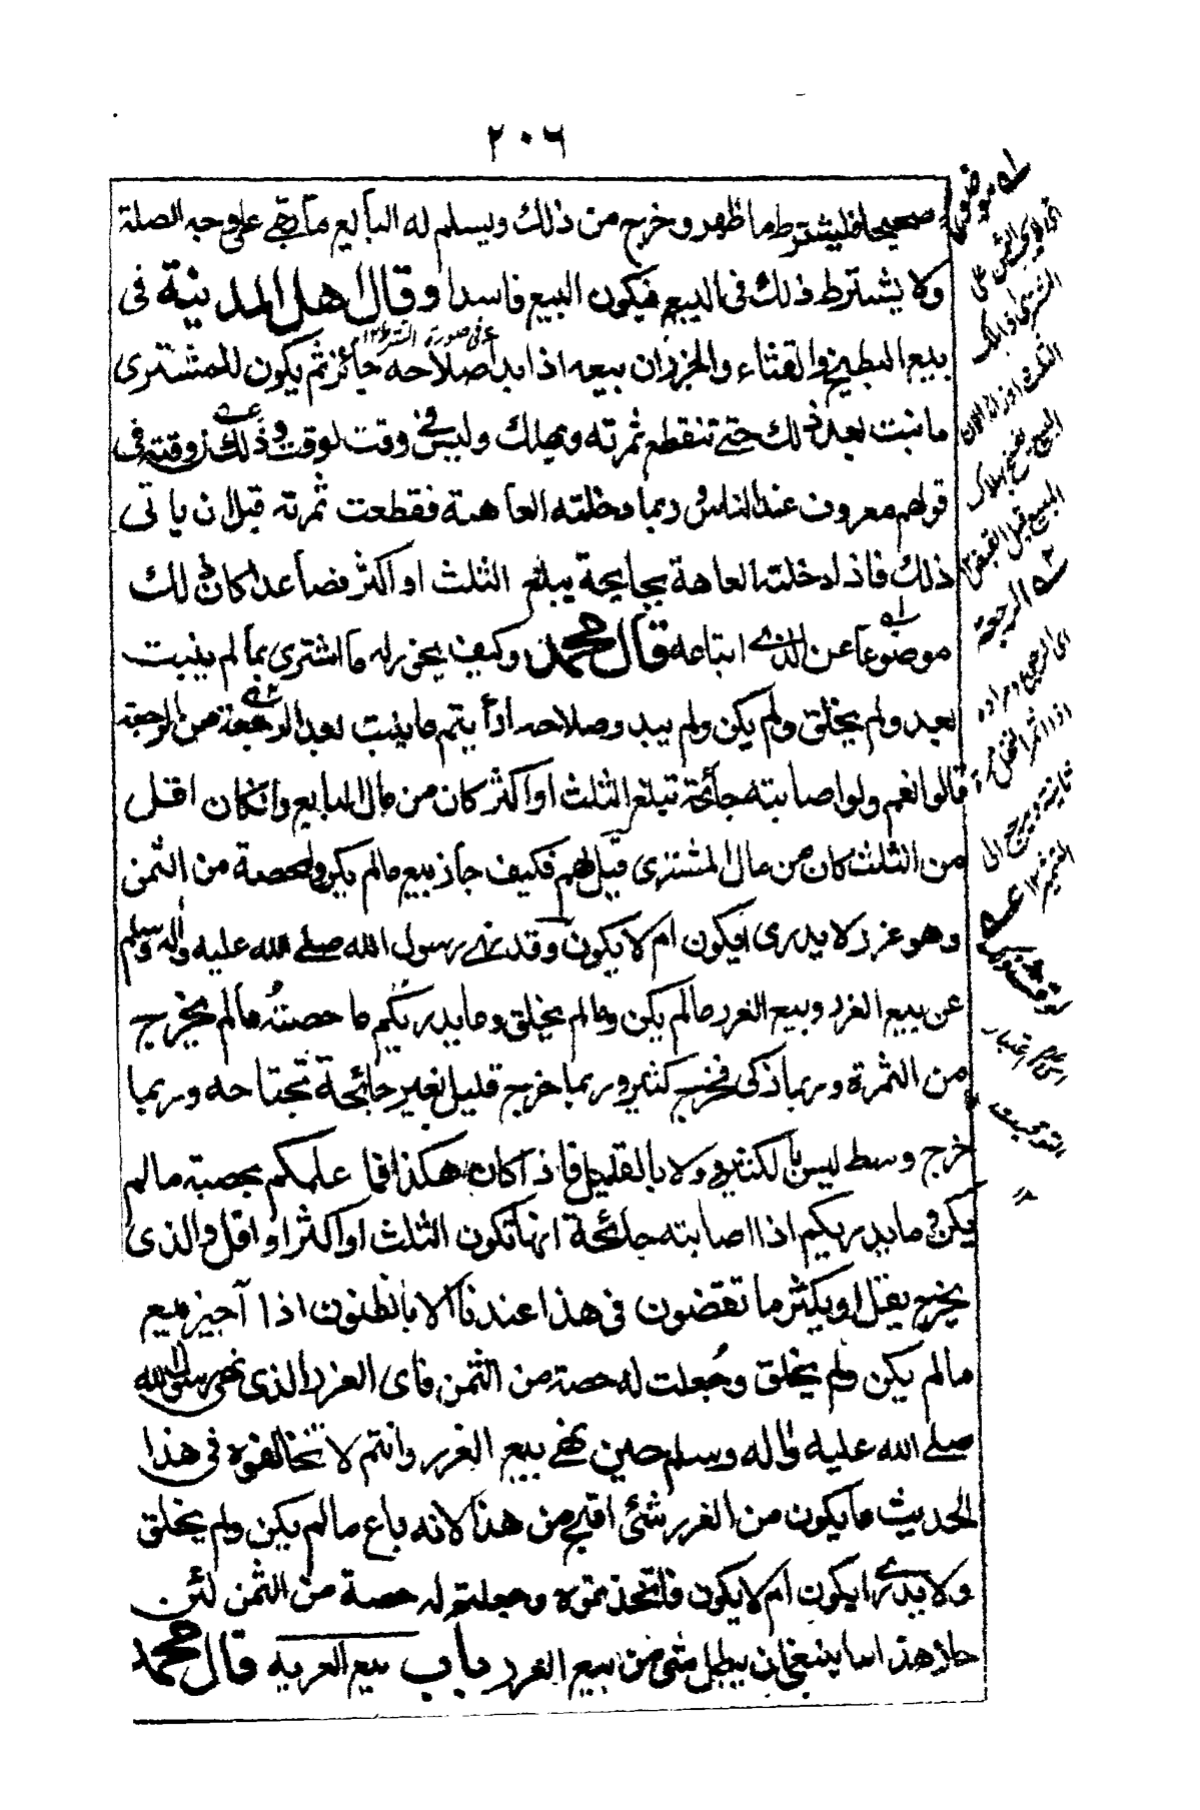 ٢٠٦
صحيحا فليشترط ما ظهر وخرج من ذلك ويسلم له البائع ما بقي على وجه الصلة
ولا يشترط ذلك فى البيع فيكون البيع فاسدا وقال اهل المدينة فى
بيع البطيخ والقثاء والخربز ان بيعه اذا بدا صلاحه جائز ثم يكون للمشترى
ما نبت بعد ذلك حتے تنقطع ثمرته ويهلك وليس فى وقت لوقت وذلك ان وقته فى
قولهم معروف عند الناس وربما دخلته العاهة فقطعت ثمرته قبل ان ياتى
ذلك فاذا دخلته العاهة بجايحة يبلغ الثلث او اكثر فصاعدا كان ذلك
موضوعا عن الذے ابتاعه قال محمد وكيف يجوز له ما اشترى بما لم ينبت
بعد ولم يخلق ولم يكن ولم يبد وصلاحه اذا يتم ما ينبت بعد الرجعة من الرجعة
قالوا نعم ولو اصابته جائحة تبلغ الثلث او اكثر كان من مال البايع وانكان اقل
من الثلث كان من مال المشترى قيل لهم فكيف جاز بيع ما لم يكن وله حصة من الثمن
وهو غرر لا يدرى ايكون ام لا يكون وقد نهے رسول الله صلے الله عليه واله وسلم
عن بيع الغرر وبيع الغرر ما لم يكن وما لم يخلق وما يدريكم ما حصته ما لم يخرج
من الثمرة وربما زكى فخرج كثير وربما خرج قليل بغير جائحة تجتاحه وربما
خرج وسط ليس بالكثير ولا بالقليل فاذا كان هكذا فما علمكم بحصته ما لم
يكن وما يدريكم اذا اصابته جائحة انها تكون الثلث او اكثر او اقل والذى
يخرج يقل او يكثر ما تقضون فى هذا عندنا الا بالظنون اذا آجيز بيع
ما لم يكن ولم يخلق وجُعلت له حصة من الثمن فاى الغرر الذى نهى رسول الله
صلے الله عليه واله وسلم حين نهے بيع الغرر وانتم لا تخالفوه فى هذا
الحديث ما يكون من الغرر شئ اقبح من هذا لانه باع ما لم يكن ولم يخلق
ولا يدرے ايكون ام لا يكون فاتخذتموه وجعلتم له حصة من الثمن لئن
جاز هذا ما ينبغى ان يبطل شئ من بيع الغرر باب بيع العرية قال محمد